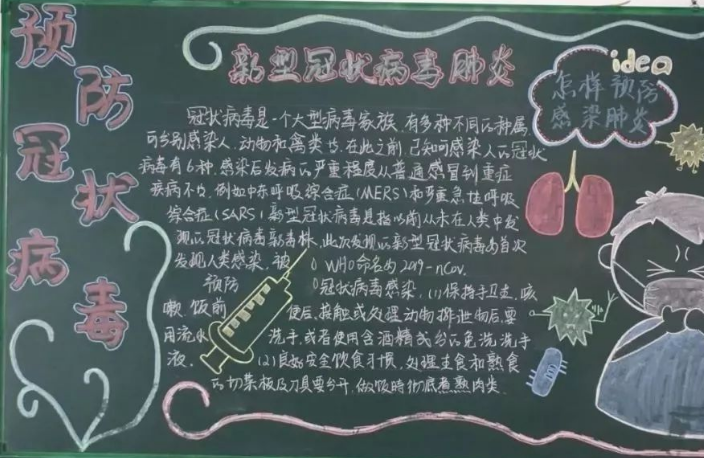 预防冠状病毒
新型冠状病毒肺炎
idea
怎样预防
感染肺炎
冠状病毒是一个大型病毒家族,有多种不同的种属,
可分别感染人、动物和禽类等.在此之前,已知可感染人的冠状
病毒有6种.感染后发病的严重程度从普通感冒到重症
疾病不等,例如中东呼吸综合症(MERS)和严重急性呼吸
综合症(SARS)新型冠状病毒是指以前从未在人类中发
现的冠状病毒新毒株,此次发现的新型冠状病毒为首次
发现人类感染,被WHO命名为2019-nCoV.
预防冠状病毒感染,(1)保持手卫生,咳
嗽、饭前便后,接触或处理动物排泄物后,要
用流水洗手,或者使用含酒精成分的免洗洗手
液.(2)良好安全饮食习惯,处理生食和熟食
的切菜板及刀具要分开,做饭時彻底煮熟肉类